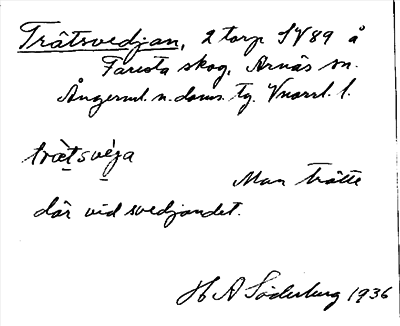 Tråtsvedjan, 2 torp SV89 å
Farsta skog, Arnäs sn.
Ångerml. n. doms. tg. Vnorrl. l.
trætsvéga
Man tråtte
där vid svedjandet.
H A Söderberg 1936